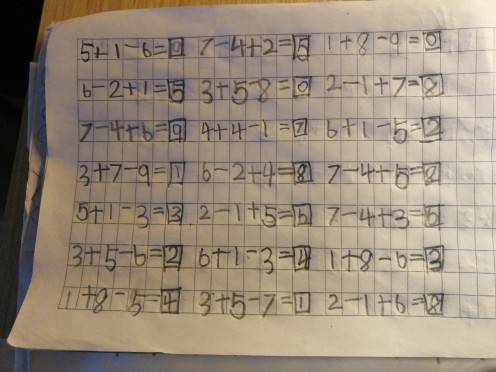 5+1-6=0 7-4+2=5 1+8-9=0
6-2+1=5 3+5-8=0 2-1+7=8
7-4+6=9 4+4-1=7 6+1-5=2
3+7-9=1 6-2+4=8 7-4+5=8
5+1-3=3 2-1+5=6 7-4+3=6
3+5-6=2 6+1-3=4 1+8-6=3
1+8-5=4 3+5-7=1 2-1+6=8